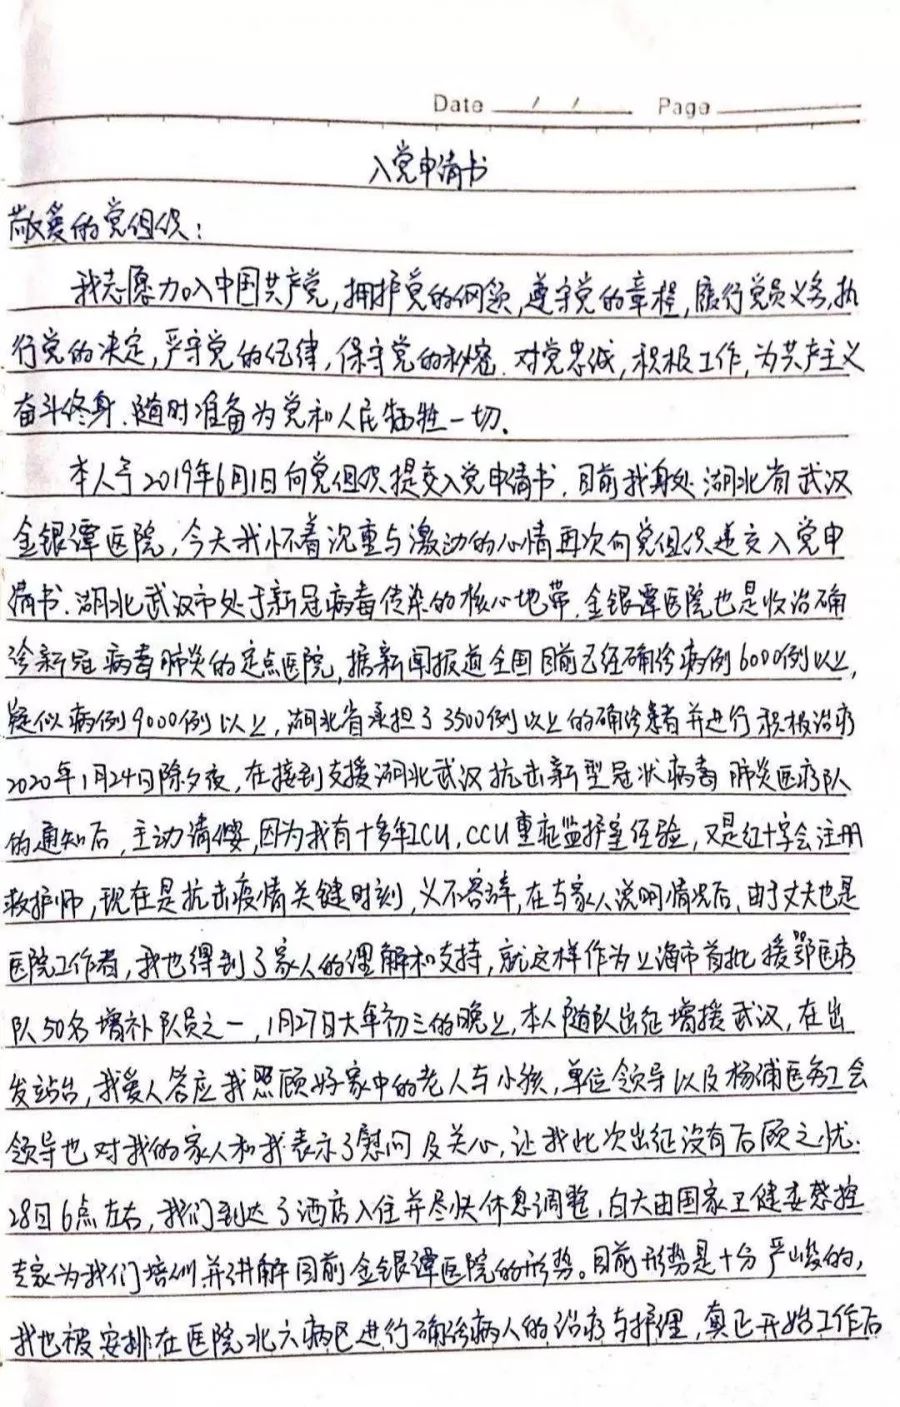 Date / / Page
入党申请书
敬爱的党组织:
我志愿加入中国共产党,拥护党的纲领,遵守党的章程,履行党员义务,执
行党的决定,严守党的纪律,保守党的秘密.对党忠诚,积极工作,为共产主义
奋斗终身.随时准备为党和人民牺牲一切.
本人于2019年6月1日向党组织提交入党申请书.目前我身处湖北省武汉
金银潭医院,今天我怀着沉重与激动的心情再次向党组织递交入党申
请书.湖北武汉市处于新冠病毒传染的核心地带.金银潭医院也是收治确
诊新冠病毒肺炎的定点医院,据新闻报道全国目前已经确诊病例6000例以上,
疑似病例9000例以上,湖北省承担了3500例以上的确诊患者并进行积极治疗
2020年1月24日除夕夜,在接到支援湖北武汉抗击新型冠状病毒肺炎医疗队
的通知后,主动请缨,因为我有十多年ICU,CCU重症监护室经验,又是红十字会注册
救护师,现在是抗击疫情关键时刻,义不容辞,在与家人说明情况后,由于丈夫也是
医院工作者,我也得到了家人的理解和支持,就这样作为上海市首批援鄂医疗
队50名增补队员之一,1月27日大年初三的晚上,本人随队出征增援武汉,在出
发站台,我爱人答应我照顾好家中的老人与小孩,单位领导以及杨浦医务工会
领导也对我的家人和我表示了慰问及关心,让我此次出征没有后顾之忧.
28日6点左右,我们到达了酒店入住并尽快休息调整,白天由国家卫健委感控
专家为我们培训并讲解目前金银潭医院的形势。目前形势是十分严峻的,
我也被安排在医院北六病区进行确诊病人的治疗与护理,真正开始工作后